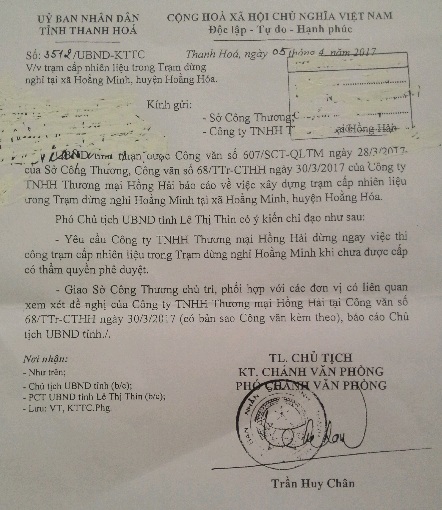 UỶ BAN NHÂN DÂN
TỈNH THANH HOÁ
CỘNG HOÀ XÃ HỘI CHỦ NGHĨA VIỆT NAM
Độc lập - Tự do - Hạnh phúc
Số: 3512/UBND-KTTC
V/v trạm cấp nhiên liệu trong Trạm dừng
nghỉ tại xã Hoằng Minh, huyện Hoằng Hóa.
Thanh Hoá, ngày 05 tháng 4 năm 2017
Kính gửi:
- Sở Công Thương;
- Công ty TNHH T ại Hồng Hải
UBND nhận được Công văn số 607/SCT-QLTM ngày 28/3/2017
của Sở Công Thương, Công văn số 68/TTr-CTHH ngày 30/3/2017 của Công ty
TNHH Thương mại Hồng Hải báo cáo về việc xây dựng trạm cấp nhiên liệu
trong Trạm dừng nghỉ Hoằng Minh tại xã Hoằng Minh, huyện Hoằng Hóa.
Phó Chủ tịch UBND tỉnh Lê Thị Thìn có ý kiến chỉ đạo như sau:
- Yêu cầu Công ty TNHH Thương mại Hồng Hải dừng ngay việc thi
công trạm cấp nhiên liệu trong Trạm dừng nghỉ Hoằng Minh khi chưa được cấp
có thẩm quyền phê duyệt.
- Giao Sở Công Thương chủ trì, phối hợp với các đơn vị có liên quan
xem xét đề nghị của Công ty TNHH Thương mại Hồng Hải tại Công văn số
68/TTr-CTHH ngày 30/3/2017 (có bản sao Công văn kèm theo), báo cáo Chủ
tịch UBND tỉnh./.
Nơi nhận:
- Như trên;
- Chủ tịch UBND tỉnh (b/c);
- PCT UBND tỉnh Lê Thị Thìn (b/c);
- Lưu: VT, KTTC.Phg.
TL. CHỦ TỊCH
KT. CHÁNH VĂN PHÒNG
PHÓ CHÁNH VĂN PHÒNG
Trần Huy Chân